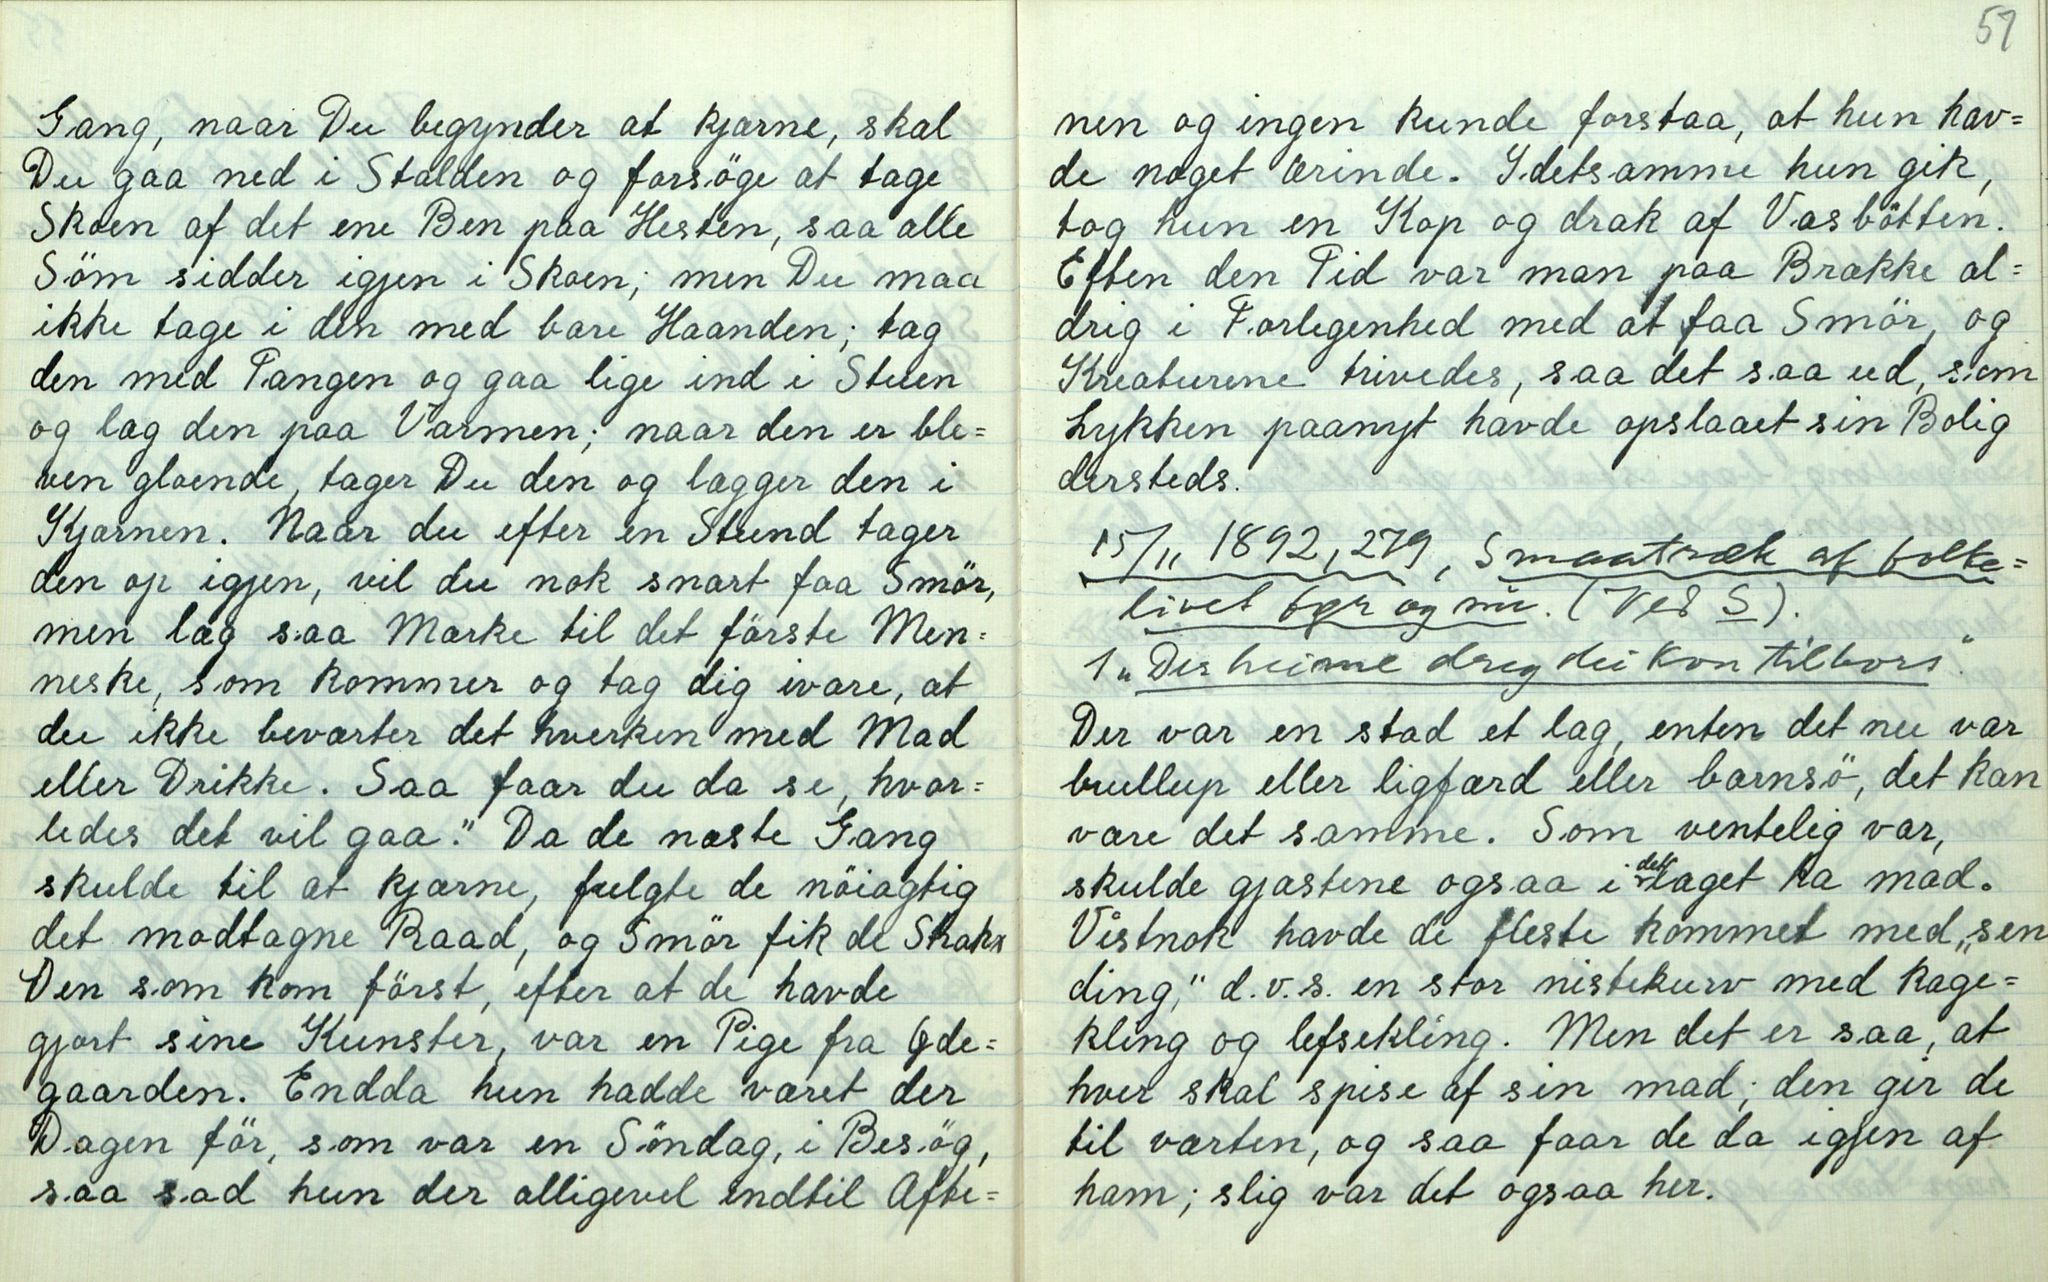 Gang, naar Du begynder at kjærne, skal
Du gaa ned i Stalden og forsöge at tage
Skoen af det ene Ben paa Hesten, saa alle
Söm sidder igjen i Skoen; men Du maa
ikke tage i den med bare Haanden; tag
den med Tangen og gaa lige ind i Stuen
og læg den paa Varmen; naar den er ble=
ven gloende, tager Du den og lægger den i
Kjærnen. Naar du efter en Stund tager
den op igjen, vil du nok snart faa Smör,
men læg saa Mærke til det förste Men=
neske, som kommer og tag dig ivare, at
du ikke beværter det hverken med Mad
eller Drikke. Saa faar du da se, hvor=
ledes det vil gaa." Da de næste Gang
skulde til at kjærne, fulgte de nöiagtig
det modtagne Raad, og Smör fik de Strax
Den som kom först, efter at de havde
gjort sine Kunster, var en Pige fra Øde=
gaarden. Endda hun hadde været der
Dagen för, som var en Söndag, i Besög,
saa sad hun der alligevel indtil Afte=
57
nen og ingen kunde forstaa, at hun hav=
de noget Ærinde. Idetsamme hun gik,
tog hun en Kop og drak af Vasbötten.
Eften den Tid var man paa Brække al=
drig i Forlegenhed med at faa Smör, og
Kreaturene trivedes, saa det saa ud, som
Lykken paanyt havde opslaaet sin Bolig
dersteds.
15/11 1892, 279, Smaatræk af folke=
livet før og nu. (Ved S).
1 „Der heime dreg dei kon tilbors".
Der var en stad et lag, enten det nu var
bullup eller ligfærd eller barnsö, det kan
være det samme. Som ventelig var,
skulde gjæstene ogsaa i dette laget ha mad.
Vistnok havde de fleste kommet med „sen
ding," d.v.s. en stor nistekurv med kage=
kling og lefsekling. Men det er saa, at
hver skal spise af sin mad; den gir de
til værten, og saa faar de da igjen af
ham; slig var det ogsaa her.